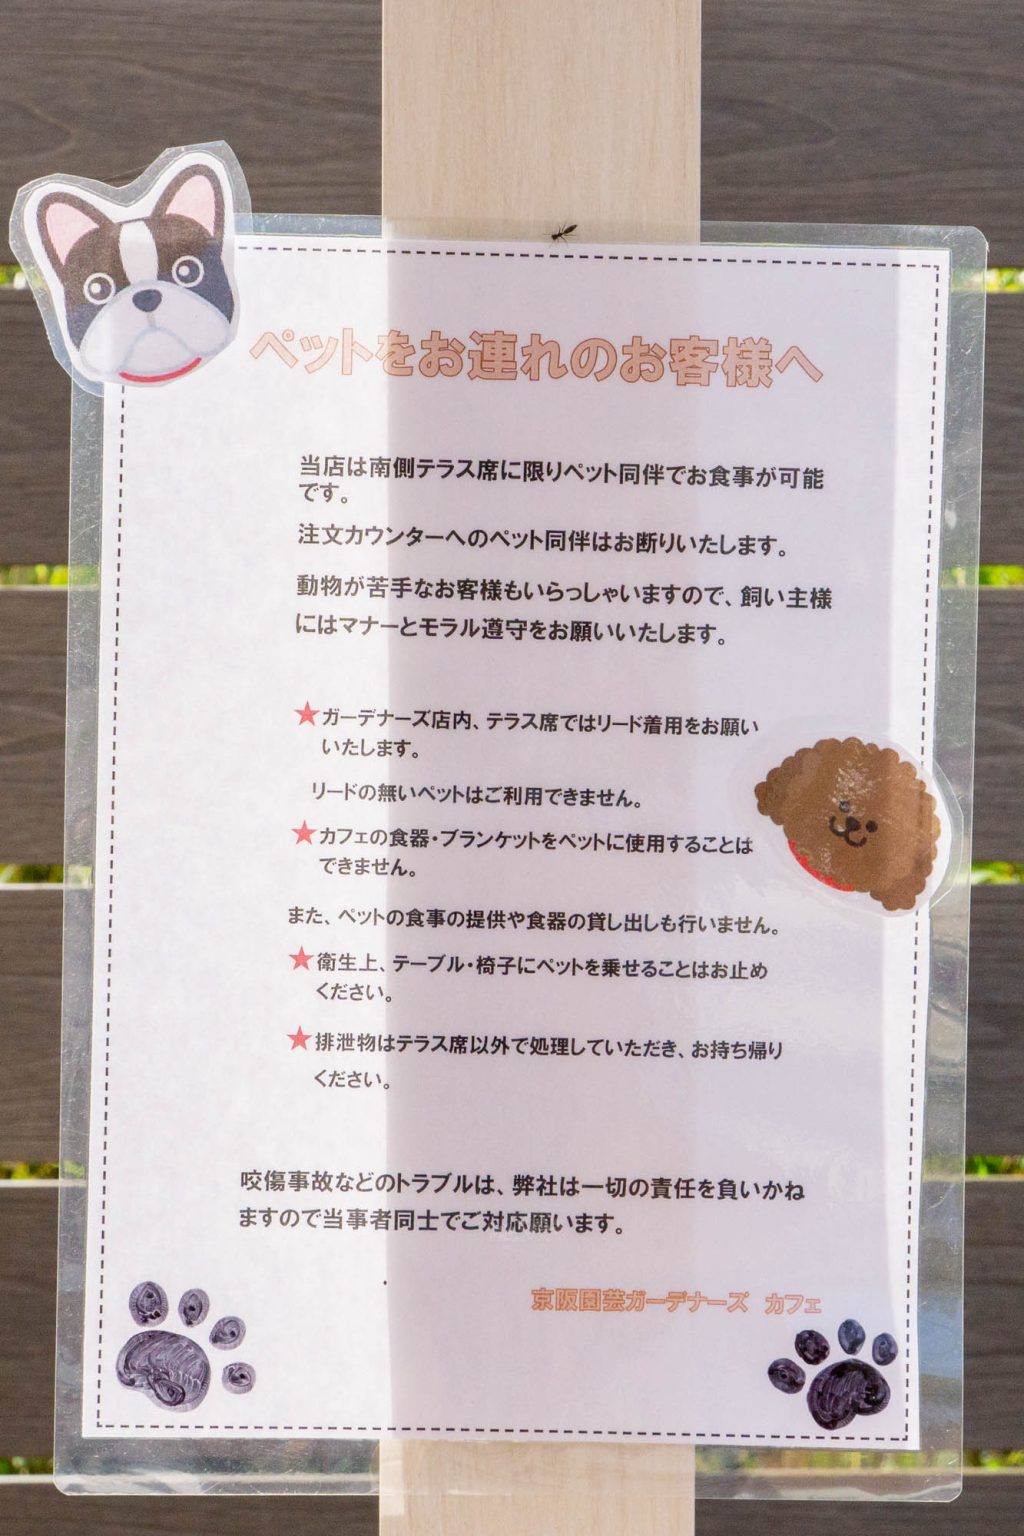 ペットをお連れのお客様へ
当店は南側テラス席に限りペット同伴でお食事が可能
です。
注文カウンターへのペット同伴はお断りいたします。
動物が苦手なお客様もいらっしゃいますので、飼い主様
にはマナーとモラル遵守をお願いいたします。
★ガーデナーズ店内、テラス席ではリード着用をお願い
いたします。
リードの無いペットはご利用できません。
★カフェの食器・ブランケットをペットに使用することは
できません。
また、ペットの食事の提供や食器の貸し出しも行いません。
★衛生上、テーブル・椅子にペットを乗せることはお止め
ください。
★排泄物はテラス席以外で処理していただき、お持ち帰り
ください。
咬傷事故などのトラブルは、弊社は一切の責任を負いかね
ますので当事者同士でご対応願います。
京阪園芸ガーデナーズ カフェ